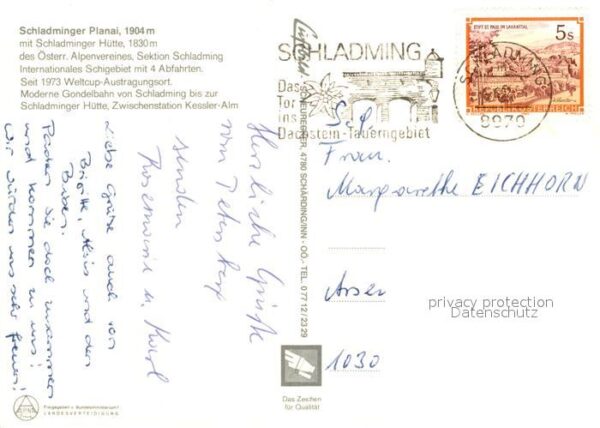 Schladminger Planai, 1904 m
mit Schladminger Hütte, 1830 m
des Österr. Alpenvereines, Sektion Schladming
Internationales Schigebiet mit 4 Abfahrten.
Seit 1973 Weltcup-Austragungsort.
Moderne Gondelbahn von Schladming bis zur
Schladminger Hütte, Zwischenstation Kessler-Alm
Herrliche Grüße
vom
senden
Rosemarie u. Karl
Liebe Grüße auch von
Brigitte, Alois und den
Buben.
Packen Sie doch zusammen
und kommen zu uns!
Wir würden uns sehr freuen!
Freigegeben v. Bundesministerium f.
LANDESVERTEIDIGUNG
4780 SCHÄRDING/INN - OÖ. - TEL. 0 77 12 / 23 29
Das Zeichen
für Qualität
SCHLADMING
Das
Tor
ins
Dachstein-Tauerngebiet
STIFT ST. PAUL IM LAVANTTAL
5 S
REPUBLIK ÖSTERREICH
SCHLADMING
8970
Frau
Margarethe EICHHORN
1030
privacy protection
Datenschutz